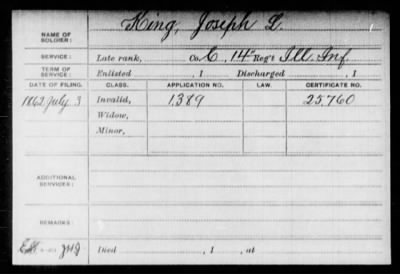 NAME OF SOLDIER: King, Joseph L.
SERVICE: Late rank, Co. C, 14" Reg't Ill. Inf.
TERM OF SERVICE: Enlisted , 1 Discharged , 1
DATE OF FILING. CLASS. APPLICATION NO. LAW. CERTIFICATE NO.
1862 July 3 Invalid, 1,389 25,760
Widow,
Minor,
ADDITIONAL SERVICES:
REMARKS:
Died , 1 , at